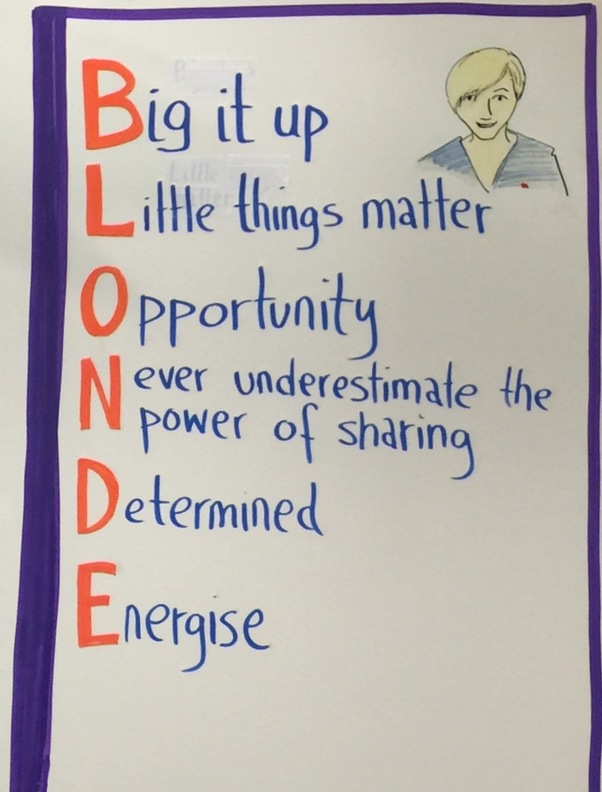 Big it up
Little things matter
Opportunity
Never underestimate the
power of sharing
Determined
Energise